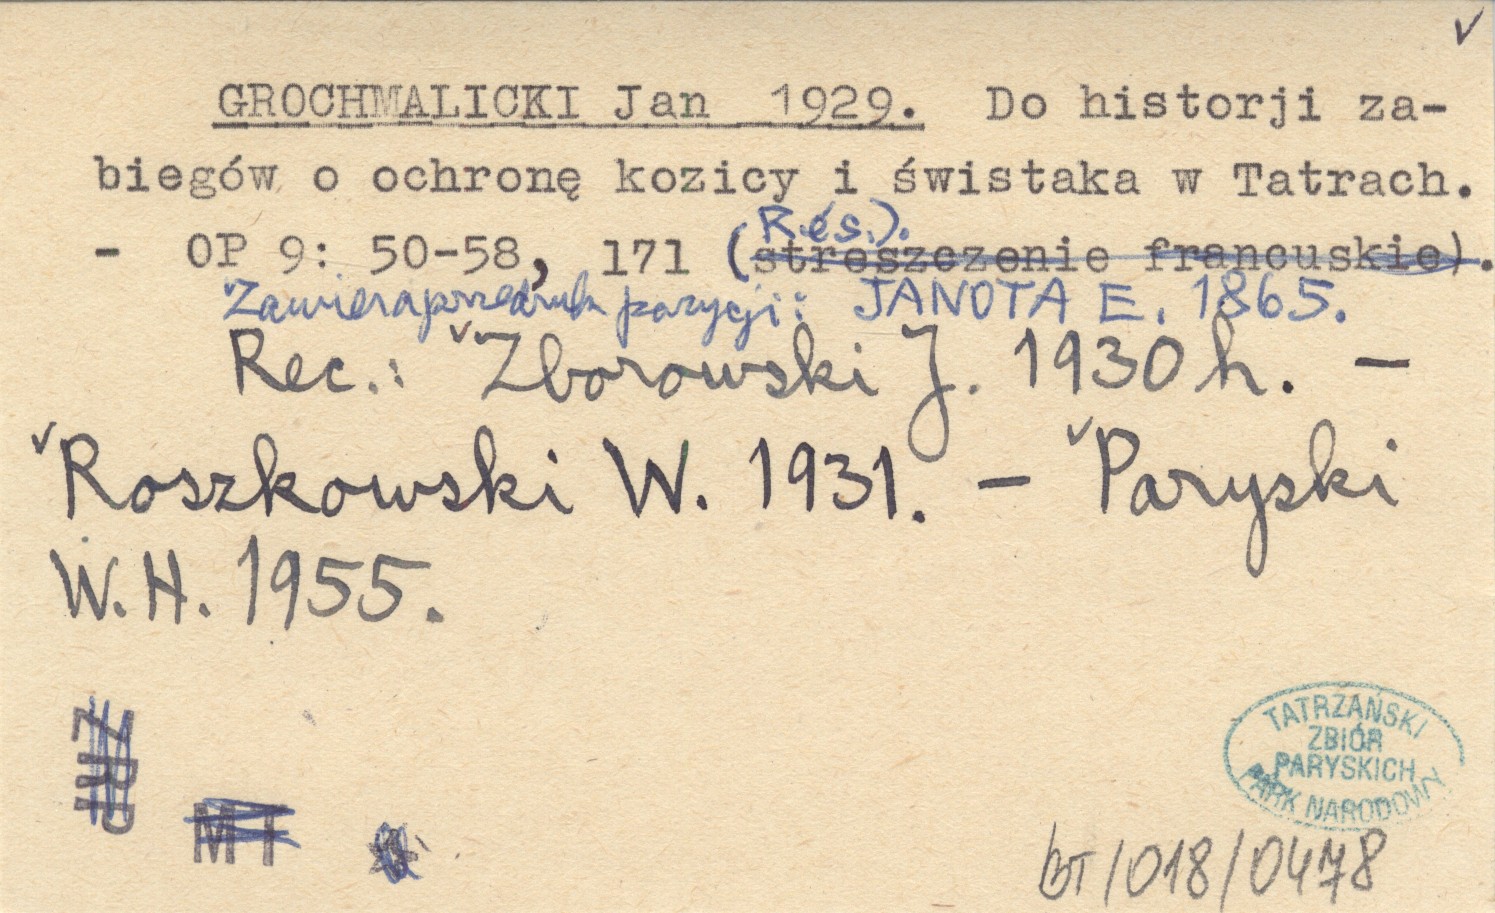 GROCHMALICKI Jan 1929. Do historji za-
biegów o ochronę kozicy i świstaka w Tatrach.
- OP 9: 50-58, 171 (streszczenie francuskie).
Rés.).
Zawiera przedruk pozycji: JANOTA E. 1865.
Rec.: Zborowski J. 1930 h. —
Roszkowski W. 1931. — Paryski
W. H. 1955.
ZRP
MT
TATRZAŃSKI
ZBIÓR
PARYSKICH
PARK NARODOWY
BT/018/0478